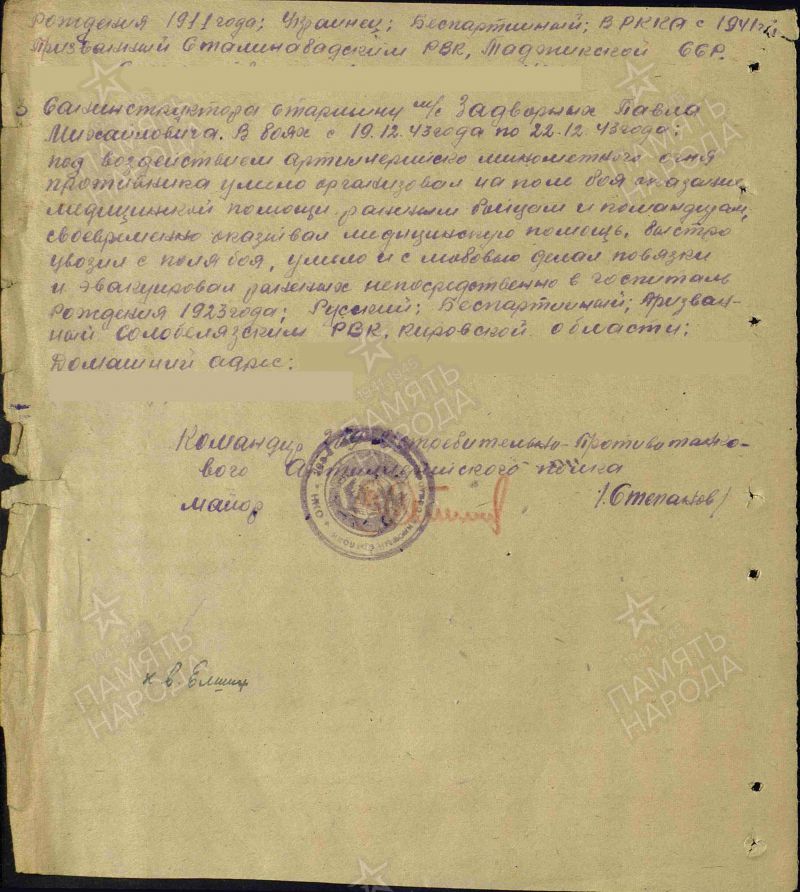 рождения 1911 года; Украинец; Беспартийный; В РККА с 1941г.
Призванный Сталинабадским РВК, Таджикской ССР.
Санинструктора старшину м/с Задворных Павла
Михайловича. В боях с 19.12.43года по 22.12.43года;
под воздействием артиллерийско минометного огня
противника умело организовал на поле боя оказание
медицинской помощи раненым бойцам и командирам,
своевременно оказывал медицинскую помощь, быстро
увозил с поля боя, умело и с любовью делал повязки
и эвакуировал раненых непосредственно в госпиталь
рождения 1923года; Русский; Беспартийный; Призван-
ный РВК, Кировской области;
Домашний адрес:
Командир Противотанко-
вого Артиллерийского полка
майор /Степанов/
ПАМЯТЬ НАРОДА
1941-1945
ПАМЯТЬ НАРОДА
1941-1945
ПАМЯТЬ НАРОДА
1941-1945
ПАМЯТЬ НАРОДА